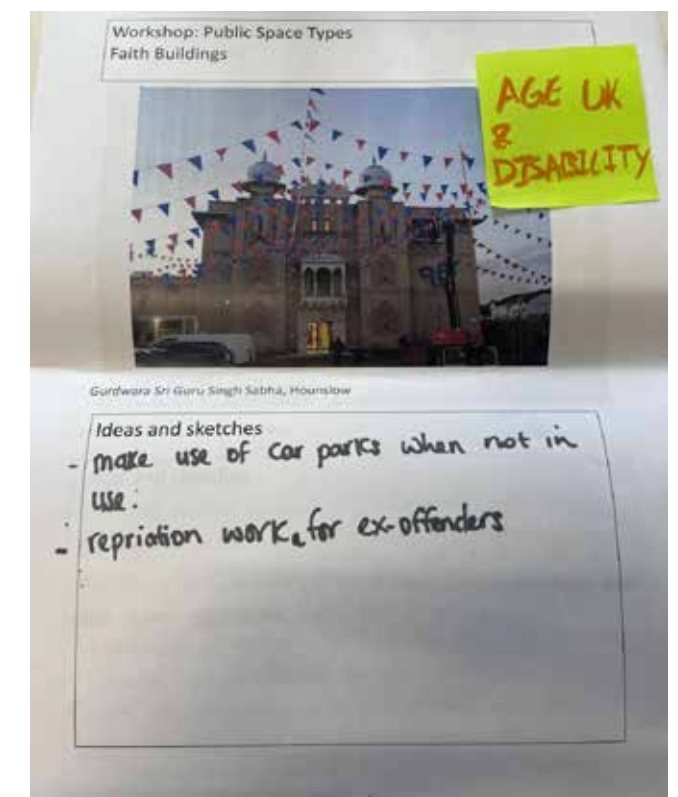 Workshop: Public Space Types
Faith Buildings
AGE UK
&
DISABILITY
Gurdwara Sri Guru Singh Sabha, Hounslow
Ideas and sketches
- make use of car parks when not in
use.
- repriation work, for ex-offenders